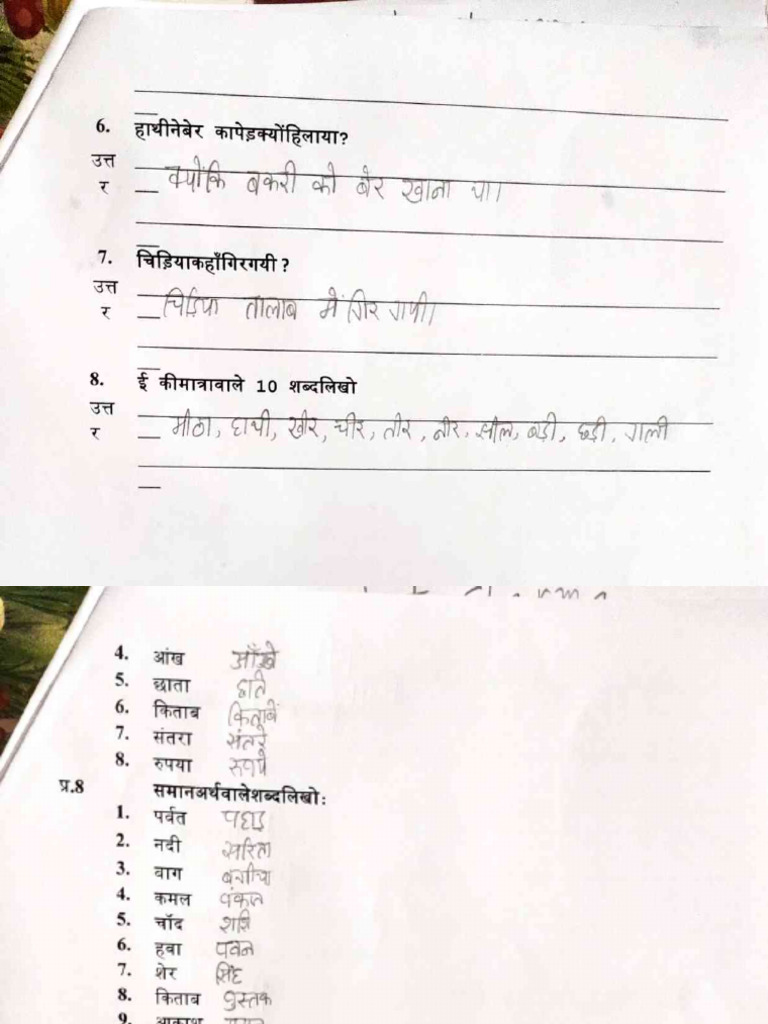 6. हाथीनेबेर कापेड़क्योंहिलाया?
उत्त
र क्योंकि बकरी को बेर खाना था।
7. चिड़ियाकहाँगिरगयी ?
उत्त
र चिड़िया तालाब में गिर गयी।
8. ई कीमात्रावाले 10 शब्दलिखो
उत्त
र मीठा, हाथी, खीर, चीर, तीर, नीर, झील, बड़ी, छड़ी, गाली
4. आंख आँखे
5. छाता छाते
6. किताब किताबें
7. संतरा संतरे
8. रुपया रूपये
प्र.8 समानअर्थवालेशब्दलिखो:
1. पर्वत पहाड़
2. नदी सरिता
3. बाग बगीचा
4. कमल पंकज
5. चाँद शशि
6. हवा पवन
7. शेर सिंह
8. किताब पुस्तक
9. आकाश गगन